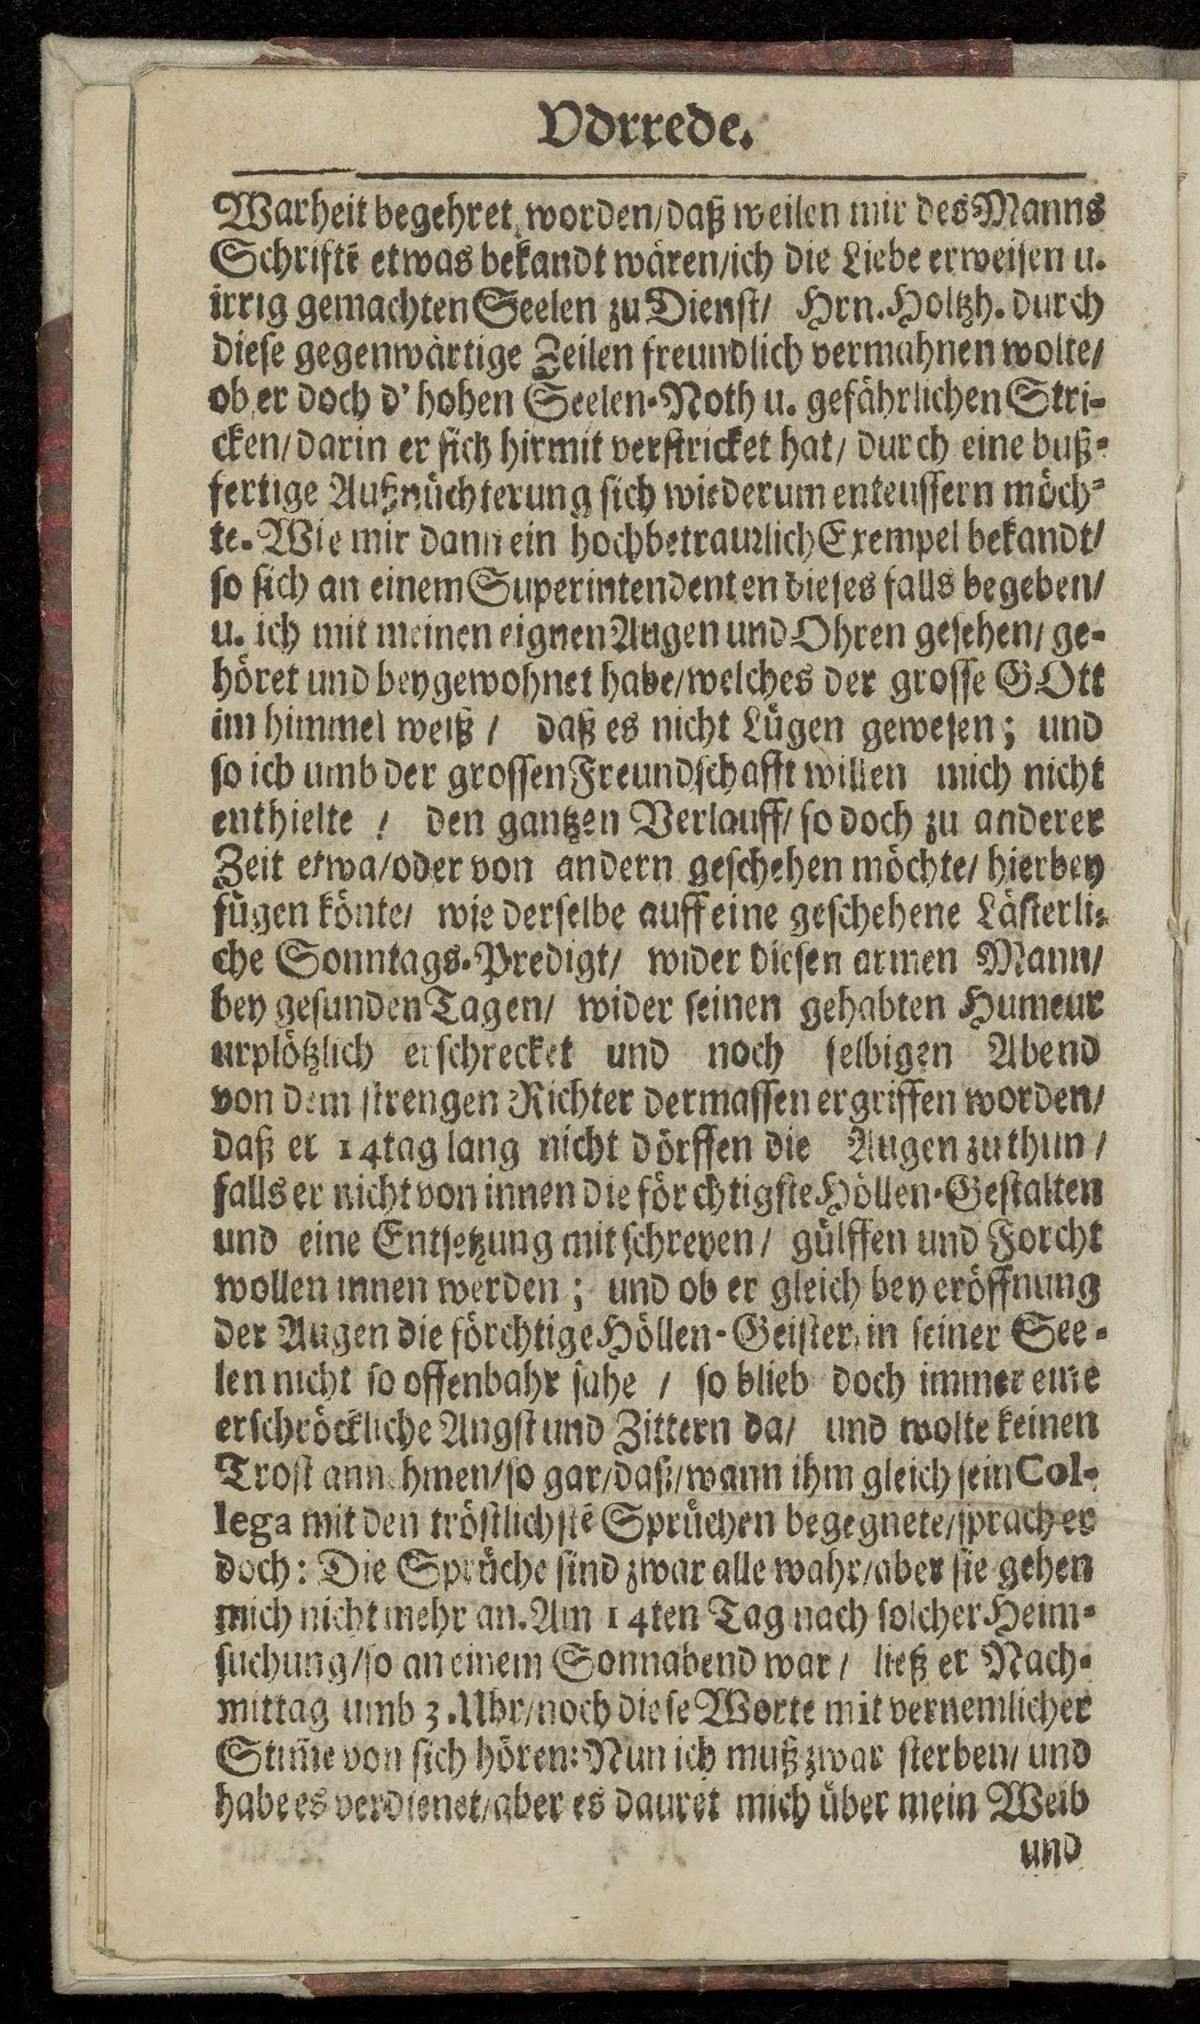 Vdrrede.
Warheit begehret worden/daß weilen mir des Manns
Schriftē etwas bekandt wären/ich die Liebe erweisen u.
irrig gemachten Seelen zu Dienst/ Hrn. Holtzh. durch
diese gegenwärtige Zeilen freundlich vermahnen wolte/
ob er doch d' hohen Seelen-Noth u. gefährlichen Stri-
cken/darin er sich hirmit verstricket hat/ durch eine buß-
fertige Außnüchterung sich wiederum enteussern möch-
te. Wie mir dann ein hochbetraurlich Exempel bekandt/
so sich an einem Superintendenten dieses falls begeben/
u. ich mit meinen eignen Augen und Ohren gesehen/ ge-
höret und beygewohnet habe/welches der grosse GOtt
im himmel weiß / daß es nicht Lügen gewesen; und
so ich umb der grossen Freundschafft willen mich nicht
enthielte / den gantzen Verlauff/ so doch zu anderer
Zeit etwa/oder von andern geschehen möchte/ hierbey
fügen könte/ wie derselbe auff eine geschehene Lästerli-
che Sonntags-Predigt/ wider diesen armen Mann/
bey gesunden Tagen/ wider seinen gehabten Humeur
urplötzlich erschrecket und noch selbigen Abend
von dem strengen Richter dermassen ergriffen worden/
daß er 14tag lang nicht dörffen die Augen zuthun /
falls er nicht von innen die förchtigste Höllen-Gestalten
und eine Entsetzung mit schreyen/ gülffen und Forcht
wollen innen werden; und ob er gleich bey eröffnung
der Augen die förchtige Höllen-Geister in seiner See-
len nicht so offenbahr sahe / so blieb doch immer eine
erschröckliche Angst und Zittern da/ und wolte keinen
Trost annehmen/so gar/daß/wann ihm gleich sein Col-
lega mit den tröstlichstē Sprüchen begegnete/sprach er
doch: Die Sprüche sind zwar alle wahr/aber sie gehen
mich nicht mehr an. Am 14ten Tag nach solcher Heim-
suchung/so an einem Sonnabend war/ ließ er Nach-
mittag umb 3. Uhr/noch diese Worte mit vernemlicher
Stim̃e von sich hören: Nun ich muß zwar sterben/ und
habe es verdienet/aber es dauret mich über mein Weib
und